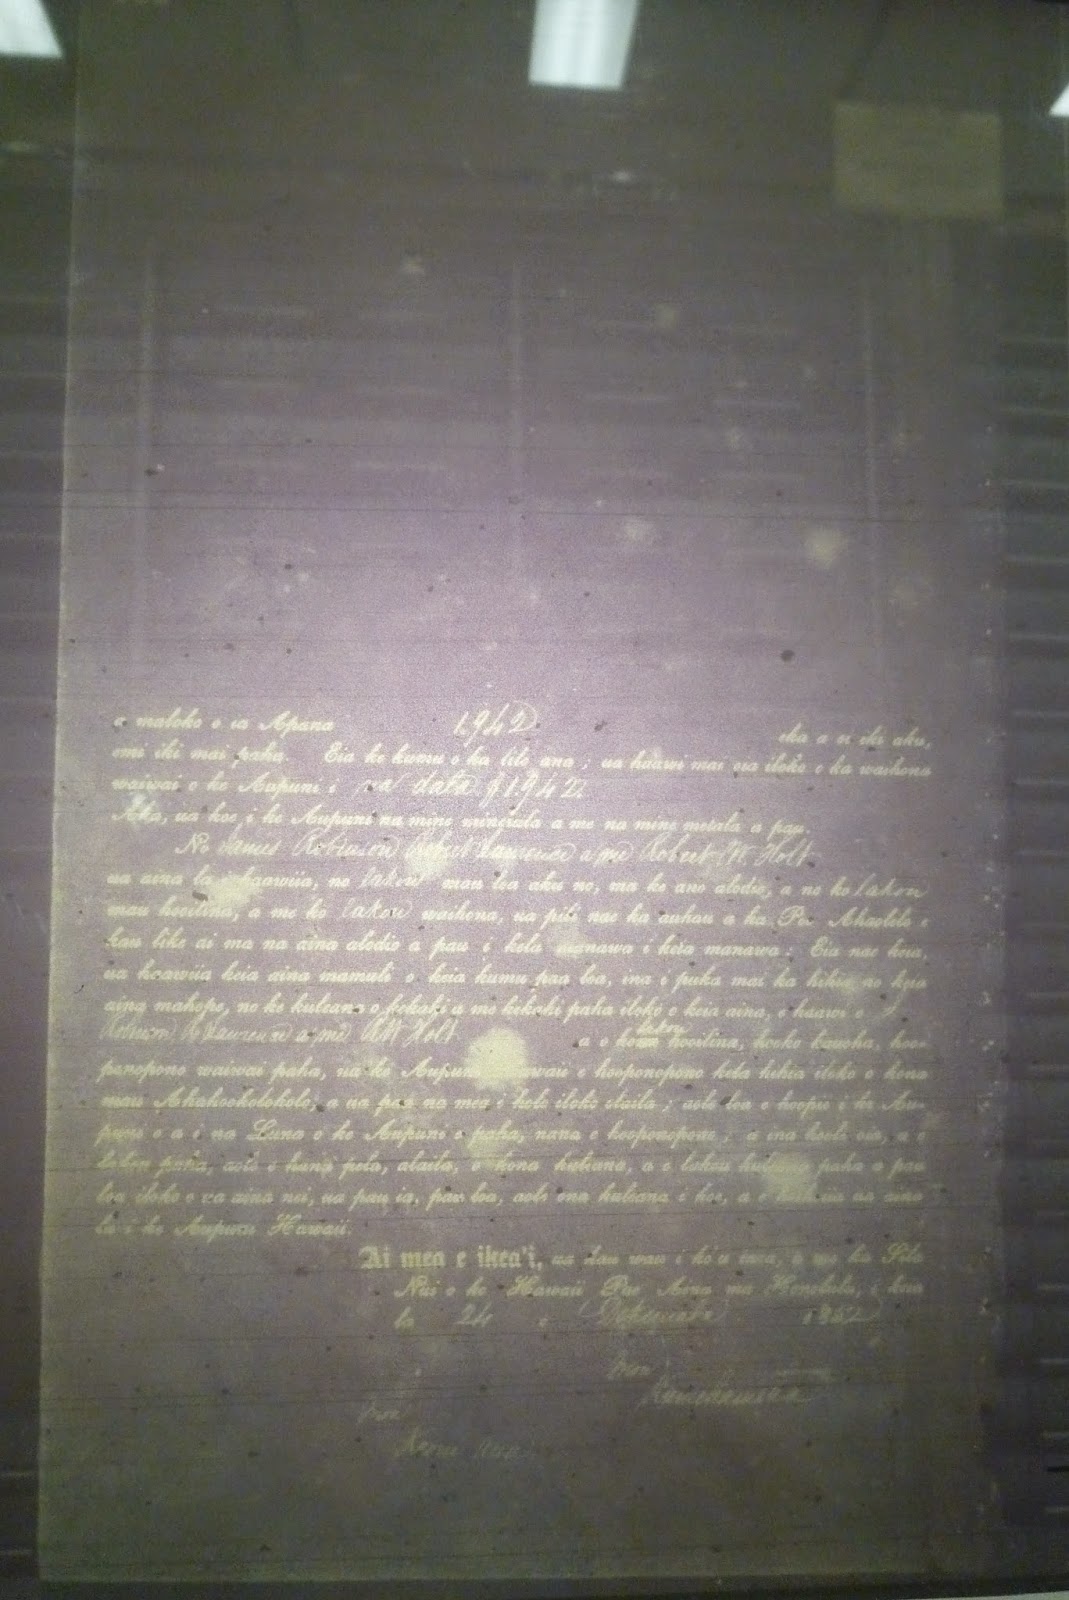 a maloko o ia Apana 1942 eka a oi iki aku,
emi iki mai paha. Eia ke kumu o ka lilo ana; ua haawi mai oia iloko o ka waihona
waiwai o ke Aupuni i
Aka, ua koe i ke Aupuni na mine minerala a me na mine metala a pau.
No James Robinson Robert Lawrence a me Robert W. Holt
ua aina la i haawiia, no lakou mau loa aku no, ma ke ano alodio, a no ko lakou
mau hooilina, a me ko lakou waihona, ua pili nae ka auhau a ka Poe Ahaolelo e
kau like ai ma na aina alodio a pau i kela manawa i keia manawa: Eia nae keia,
ua haawiia keia aina mamuli o keia kumu paa loa, ina i puka mai ka hihia no keia
aina mahope, no ke kuleana o paha iloko o keia aina, e haawi o J
Robinson R Lawrence a me R W Holt a o ko lakou hooilina, hooko kauoha, hoo-
ponopono waiwai paha, na ke Aupuni Hawaii e hooponopono kela hihia iloko o kona
mau Ahahookolokolo, a ua paa na mea i holo iloko olaila; aole loa e hoopii i ke Au-
puni a i na Luna o ke Aupuni paha, nana e hooponopono; a ina hoole oia, a o
lakou paha, aole e hana pela, alaila, o kona kuleana, a o lakou kuleana paha a pau
loa iloko o ua aina nei, ua pau ia, pau loa, aole ona kuleana i koe, a e hoihoiia ua aina
la i ke Aupuni Hawaii.
Ai mea e ikea'i, ua kau wau i ko'u inoa, a me ka Sila
Nui o ko Hawaii Pae Aina ma Honolulu, i keia
la 24 o Dekemaba 185
Kamehameha
Keoni Ana